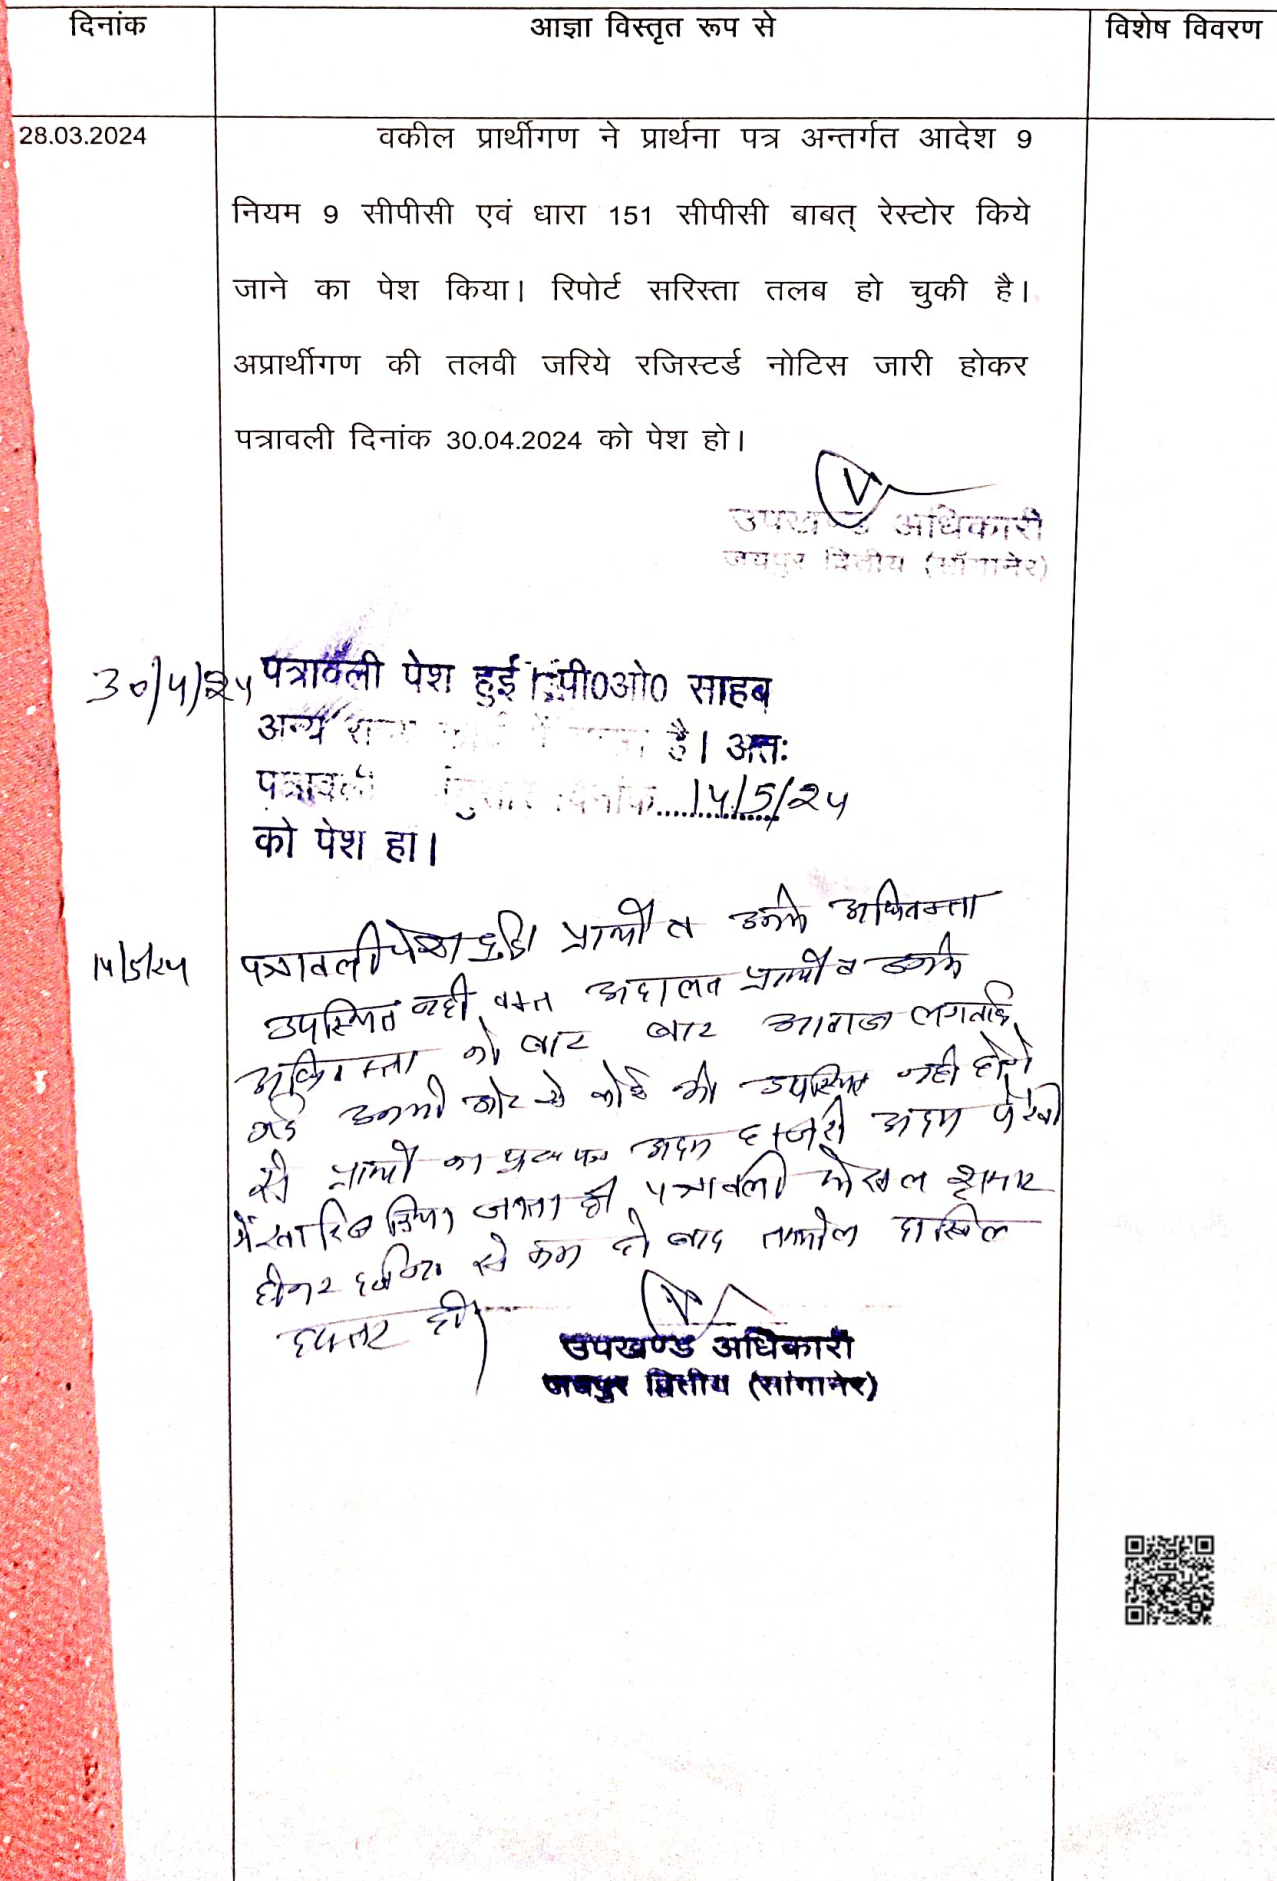 दिनांक
आज्ञा विस्तृत रूप से
विशेष विवरण
28.03.2024
वकील प्रार्थीगण ने प्रार्थना पत्र अन्तर्गत आदेश 9
नियम 9 सीपीसी एवं धारा 151 सीपीसी बाबत् रेस्टोर किये
जाने का पेश किया। रिपोर्ट सरिस्ता तलब हो चुकी है।
अप्रार्थीगण की तलवी जरिये रजिस्टर्ड नोटिस जारी होकर
पत्रावली दिनांक 30.04.2024 को पेश हो।
उपखण्ड अधिकारी
जयपुर द्वितीय (साँगानेर)
30/4/24 पत्रावली पेश हुई। पी0ओ0 साहब
अन्य है। अतः
पत्रावली दिनांक.....14/5/24
को पेश हो।
14/5/24 पत्रावली पेश हुई। प्रार्थी व उनके अधिवक्ता
उपस्थित नही, वक्त अदालत प्रार्थी व उनके
अधिवक्ता को बार बार आवाज लगवाई
गई उनकी ओर से कोई भी उपस्थित नही होने
से प्रार्थी का पत्र अदम हाजरी अदम पैरवी
में खारिज किया जाता है। पत्रावली फैसल शुमार
होकर से कम हो बाद तकमील दाखिल
दफ्तर हो।
उपखण्ड अधिकारी
जयपुर द्वितीय (सांगानेर)